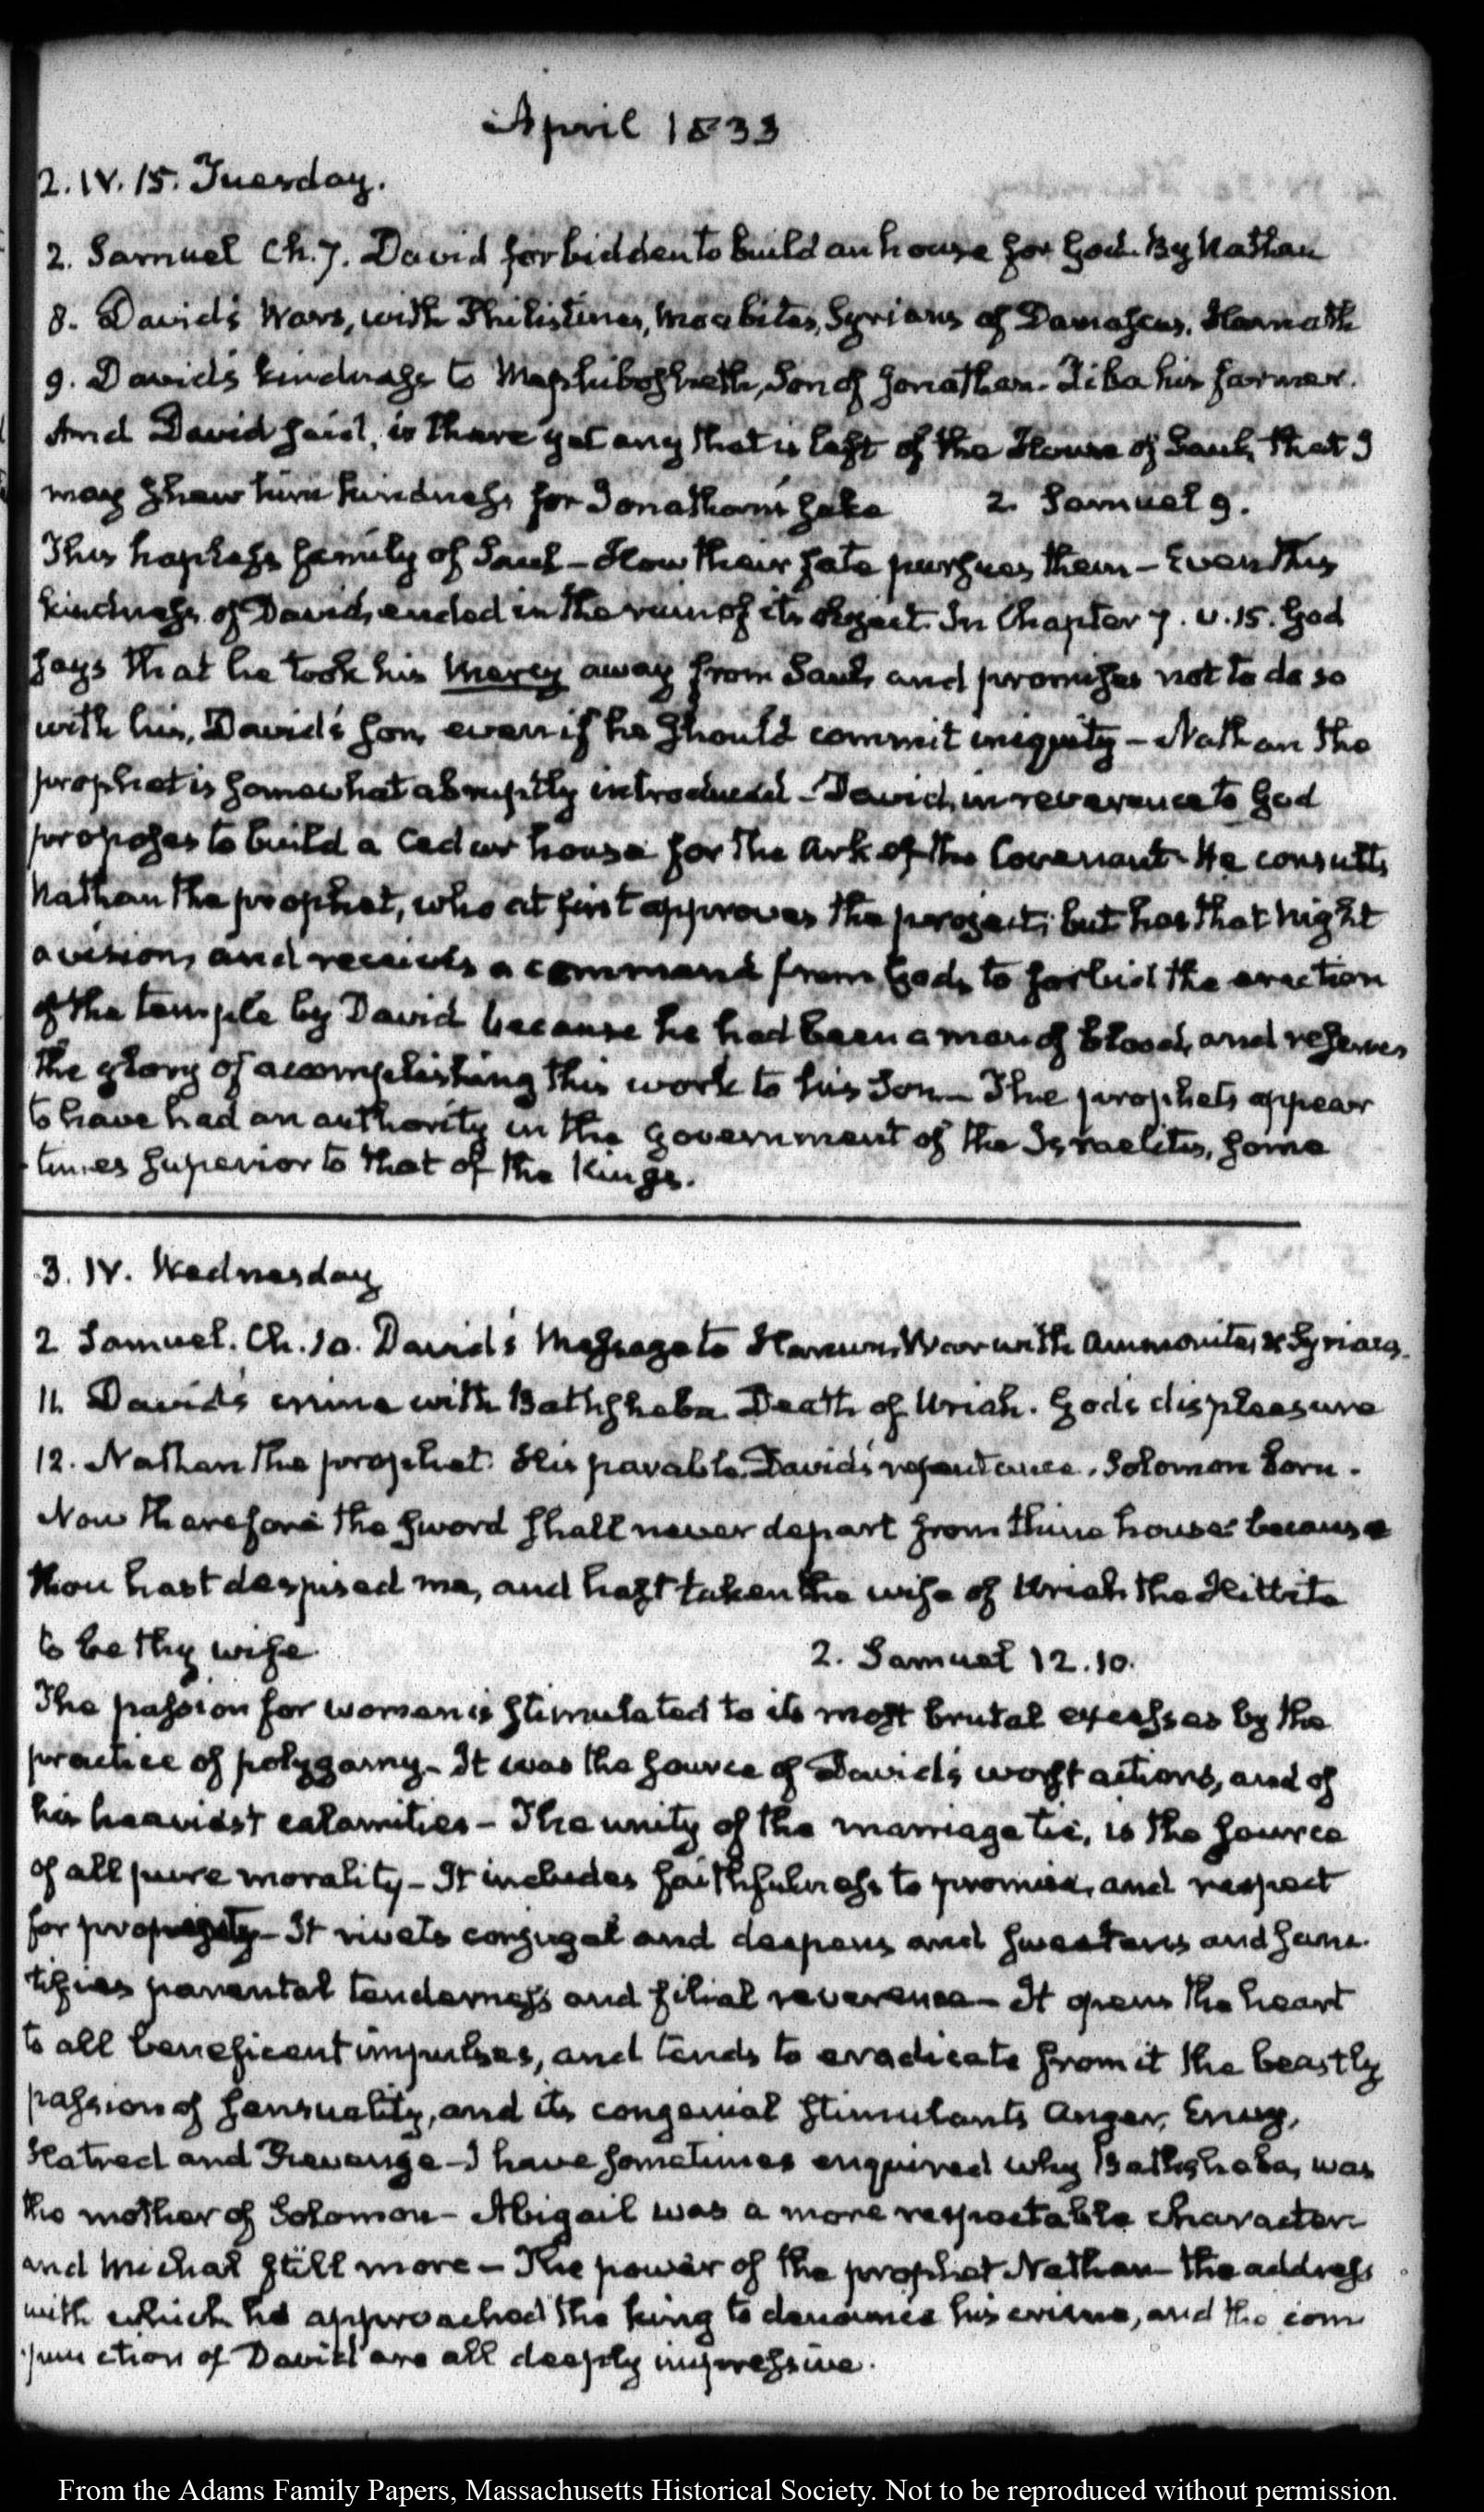 April 1833
2. IV. 15. Tuesday.
2. Samuel Ch. 7. David forbidden to build an house for God. By Nathan
8. David's Wars, with Philistines, Moabites, Syrians of Damascus, Hamath
9. David's kindness to Mephibosheth, Son of Jonathan. Ziba his farmer.
And David said, is there yet any that is left of the House of Saul, that I
may shew him kindness, for Jonathan's sake 2. Samuel 9.
This hapless family of Saul – How their fate pursues them – Even this
kindness of David, ended in the ruin of its object. In Chapter 7. v. 15. God
says that he took his mercy away from Saul, and promises not to do so
with his, David's son, even if he should commit iniquity – Nathan the
prophet is somewhat abruptly introduced – David, in reverence to God
proposes to build a Cedar house for the Ark of the Covenant – He consults
Nathan the prophet, who at first approves the project; but has that night
a vision, and receives a command from God, to forbid the erection
of the temple by David because he had been a man of blood, and reserves
the glory of accomplishing this work to his Son – The prophets appear
to have had an authority in the government of the Israelites, some
times superior to that of the Kings.
3. IV. Wednesday
2 Samuel. Ch. 10. David's Message to Hanun, War with Ammonites & Syrians.
11. David's crime with Bathsheba. Death of Uriah. God's displeasure
12. Nathan the prophet. His parable. David's repentance. Solomon born.
Now therefore the sword shall never depart from thine house: because
thou hast despised me, and hast taken the wife of Uriah the Hittite
to be thy wife. 2. Samuel 12. 10.
The passion for women is stimulated to its most brutal excesses by the
practice of polygamy – It was the source of David's worst actions, and of
his heaviest calamities – The unity of the marriage tie, is the source
of all pure morality – It includes faithfulness to promise, and respect
for property – It rivets conjugal and deepens and sweetens and sanc-
tifies parental tenderness and filial reverence – It opens the heart
to all beneficent impulses, and tends to eradicate from it the beastly
passion of sensuality, and its congenial stimulants Anger, Envy,
Hatred and Revenge – I have sometimes enquired why Bathsheba, was
the mother of Solomon – Abigail was a more respectable character
and Michal still more – The power of the prophet Nathan – the address
with which he approached the king to denounce his crime, and the com
punction of David are all deeply impressive.
From the Adams Family Papers, Massachusetts Historical Society. Not to be reproduced without permission.